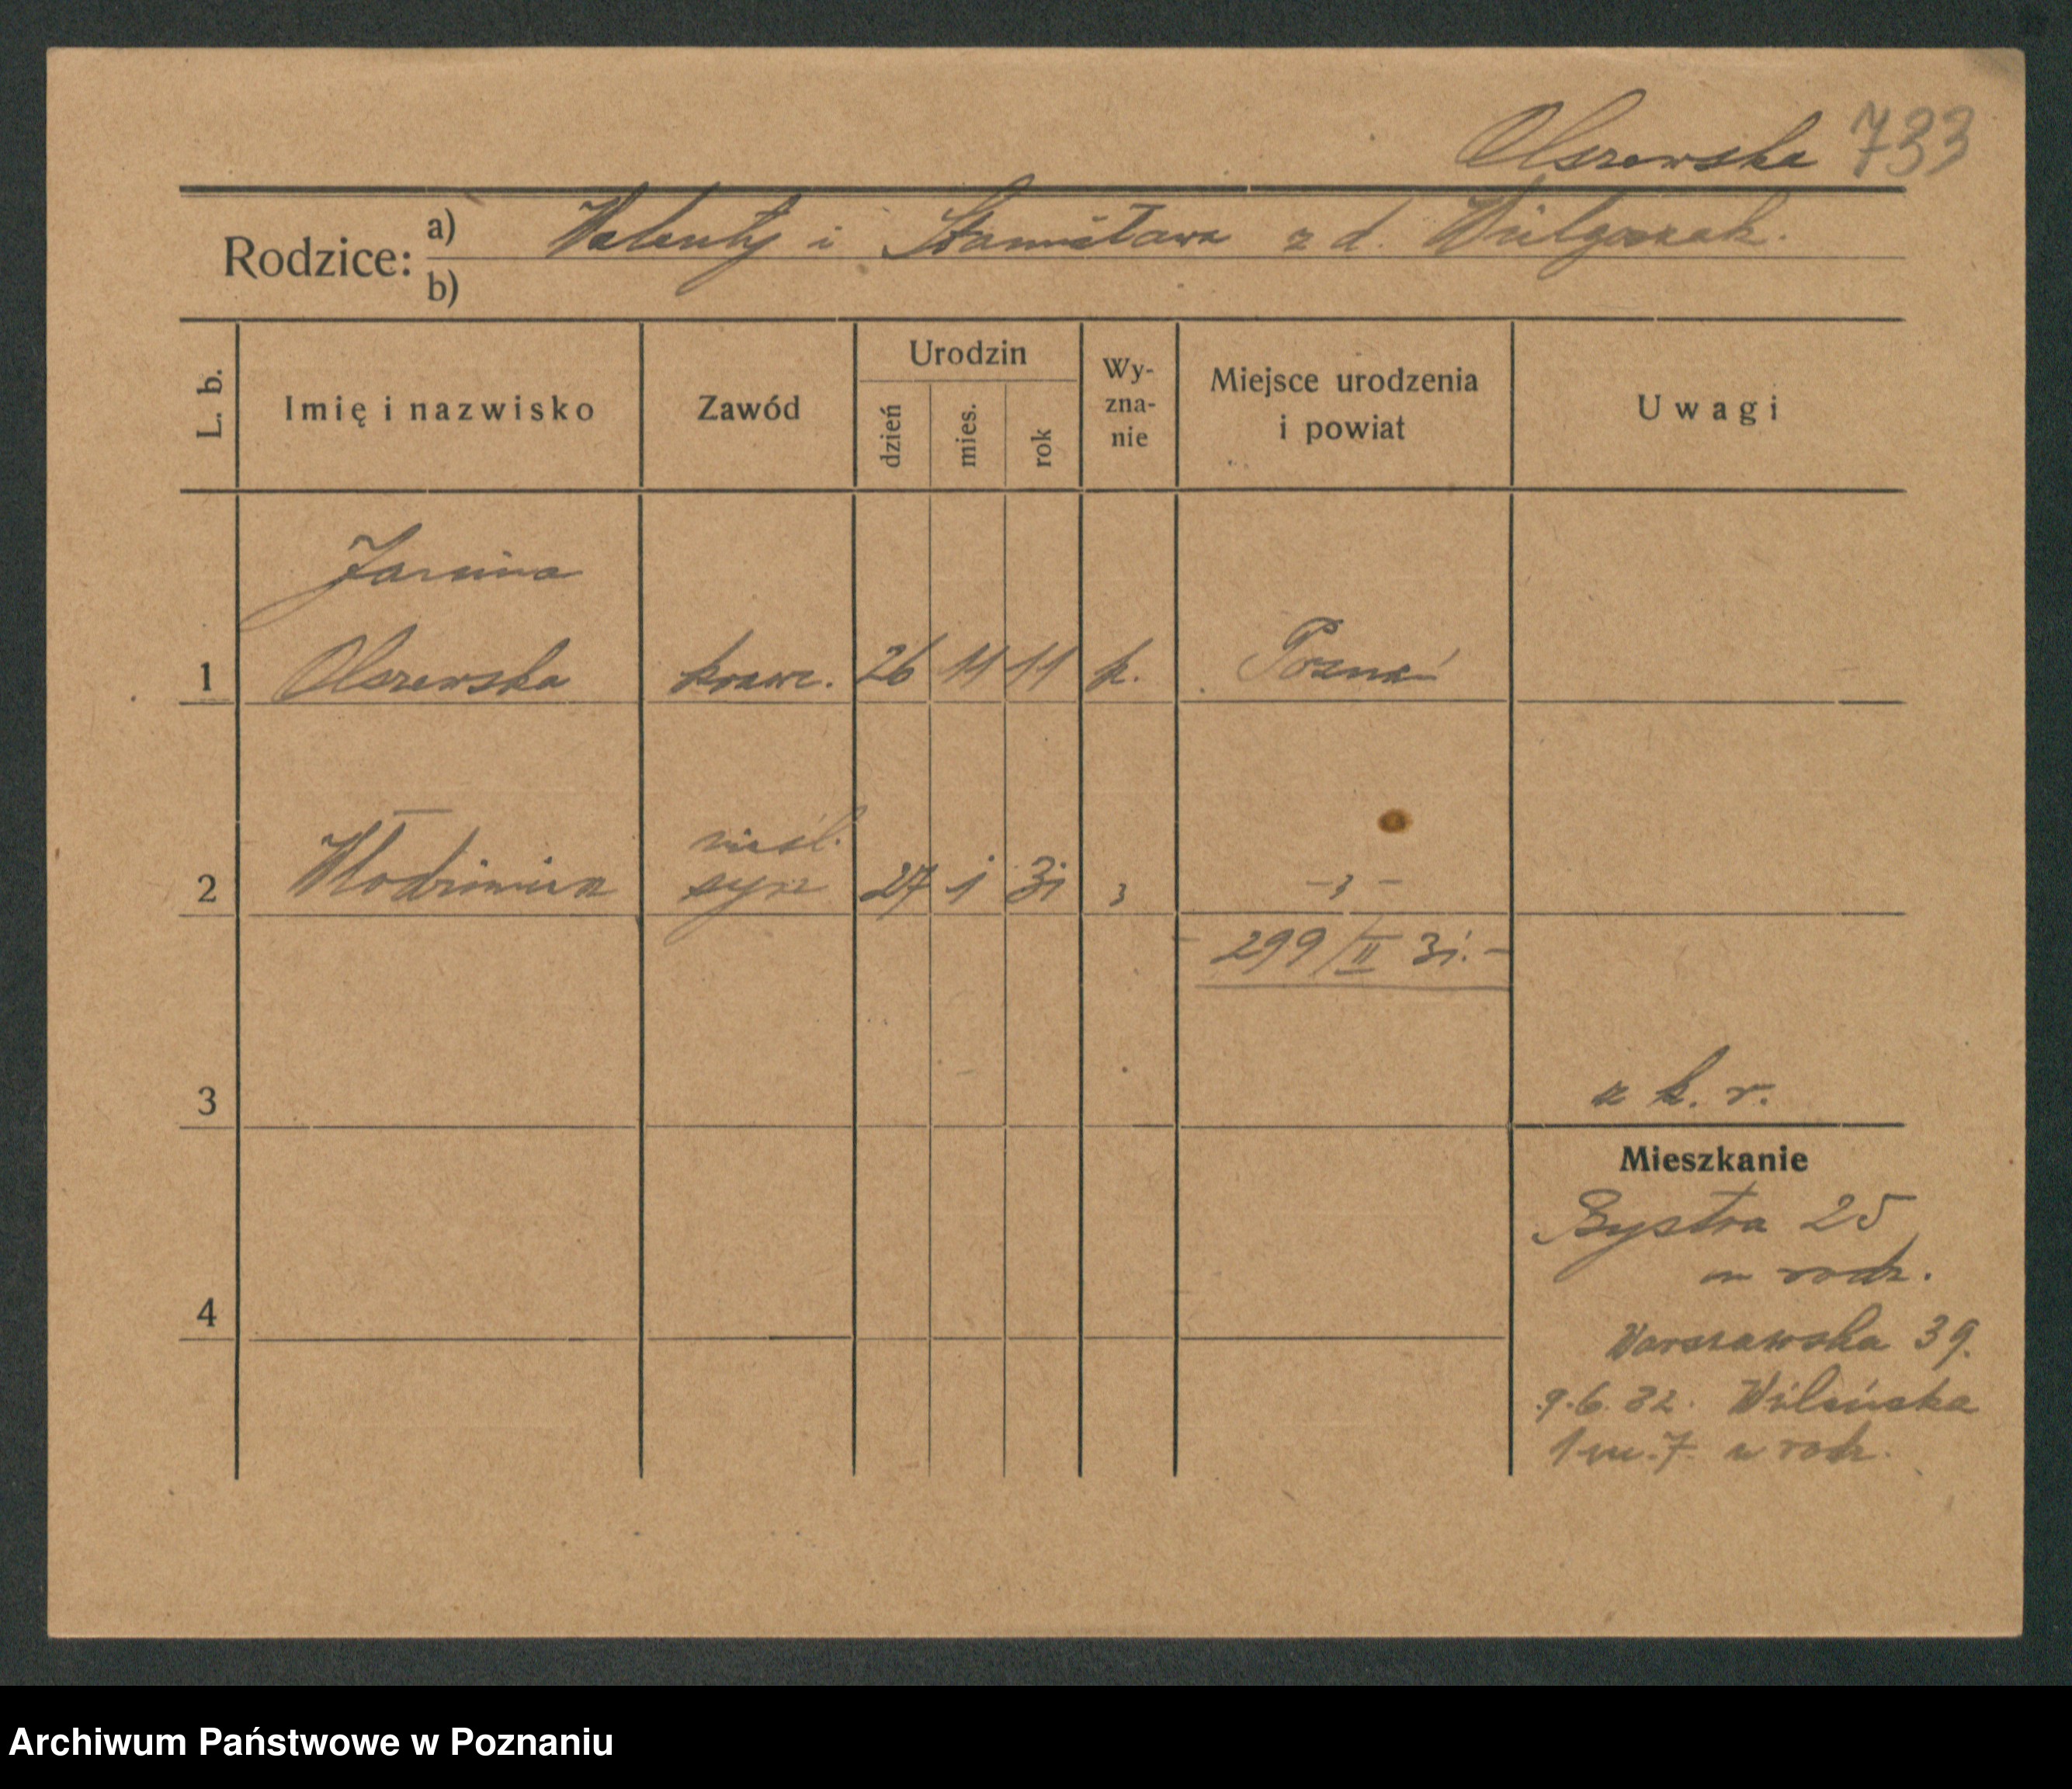 Olszewska 733
Rodzice: a) Walenty i Stanisława z d.
b)
L. b. Imię i nazwisko Zawód Urodzin dzień mies. rok Wy-zna-nie Miejsce urodzenia i powiat Uwagi
Janina
1 Olszewska krawc. 26 11 11 k. Poznań
nieśl.
2 Włodzimierz syn 27 1 31 " -"-
- 299/II 31. -
3 z k. r.
Mieszkanie
Bystra 25
4
Warszawska 39.
9.6.32. Wileńska
1 m. 7 u rodz.
Archiwum Państwowe w Poznaniu